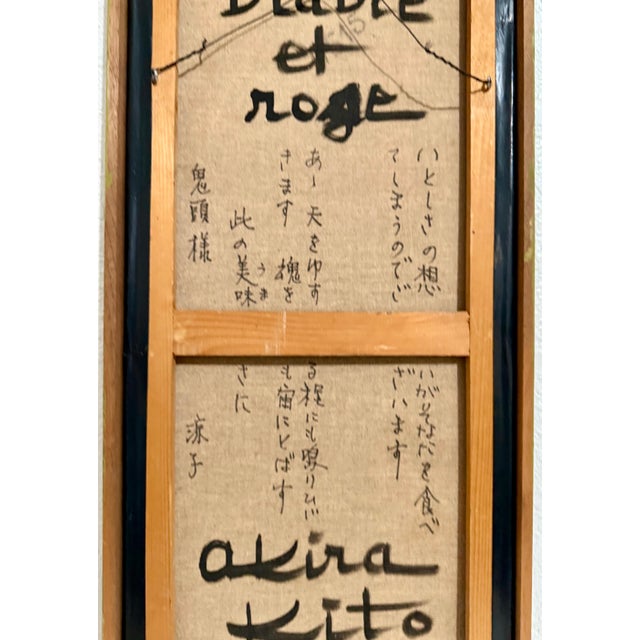 Diable
et
roge
いとしさの想いがそなたを食べ
てしまうのでございます
あ〜 天をゆする程にも りひび
きます 塊をも宙にとばす
此の美味さに
うま
鬼頭様 涼子
akira
Kito